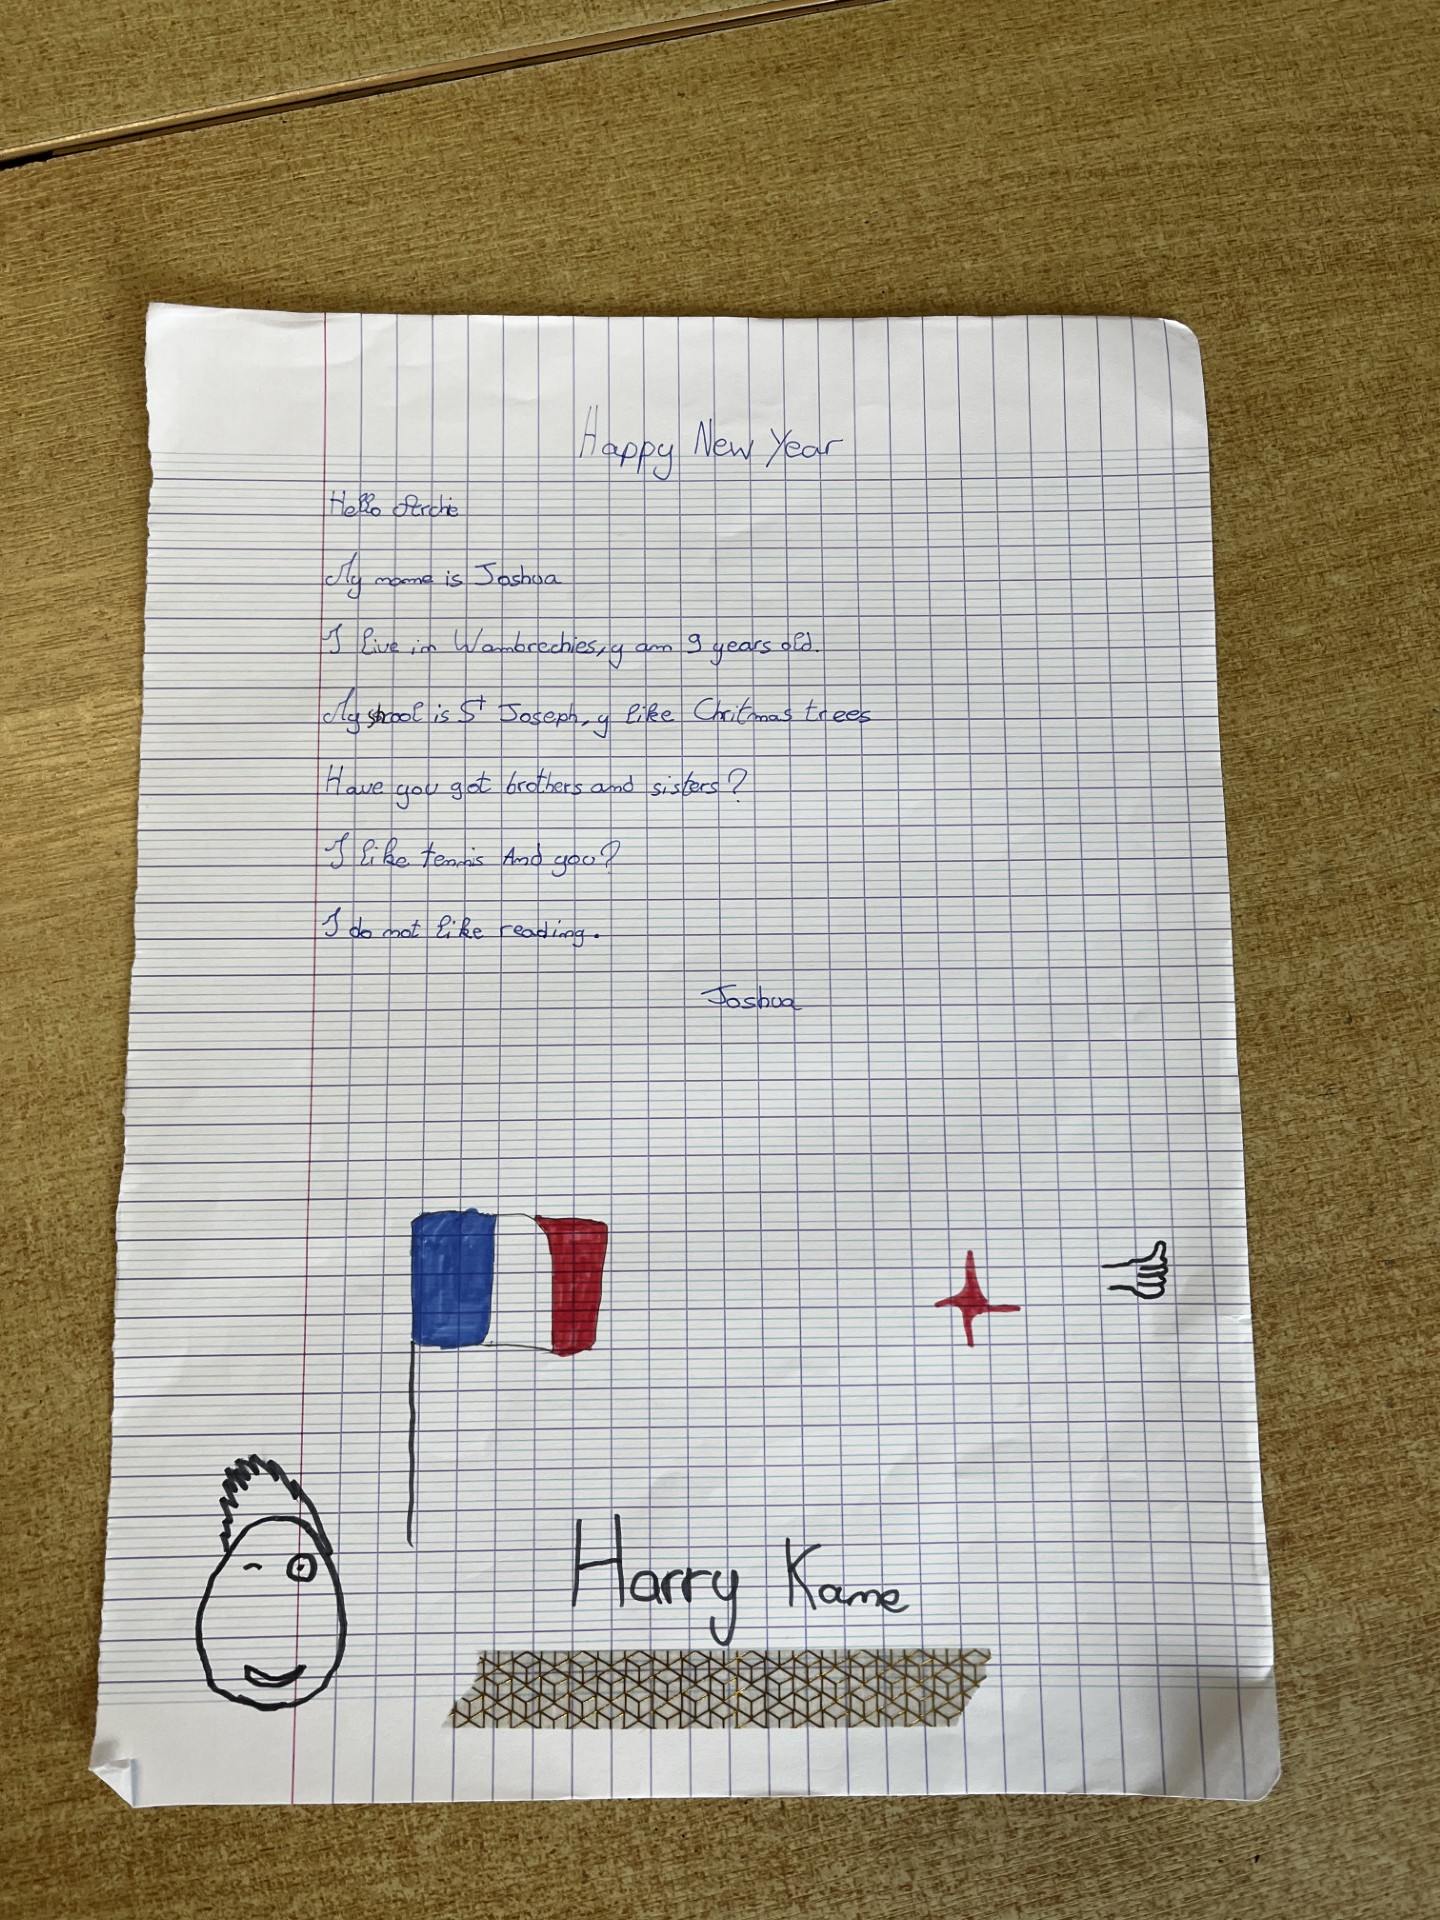 Happy New Year
Hello Archie
My name is Joshua
I live in Wambrechies, y am 9 years old.
My shool is St Joseph, y like Chritmas trees
Have you got brothers and sisters?
I like tennis And you?
I do not like reading.
Joshua
Harry Kane